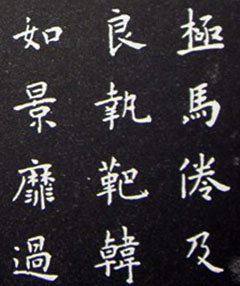 極馬倦及
良執靶韓
如景靡過